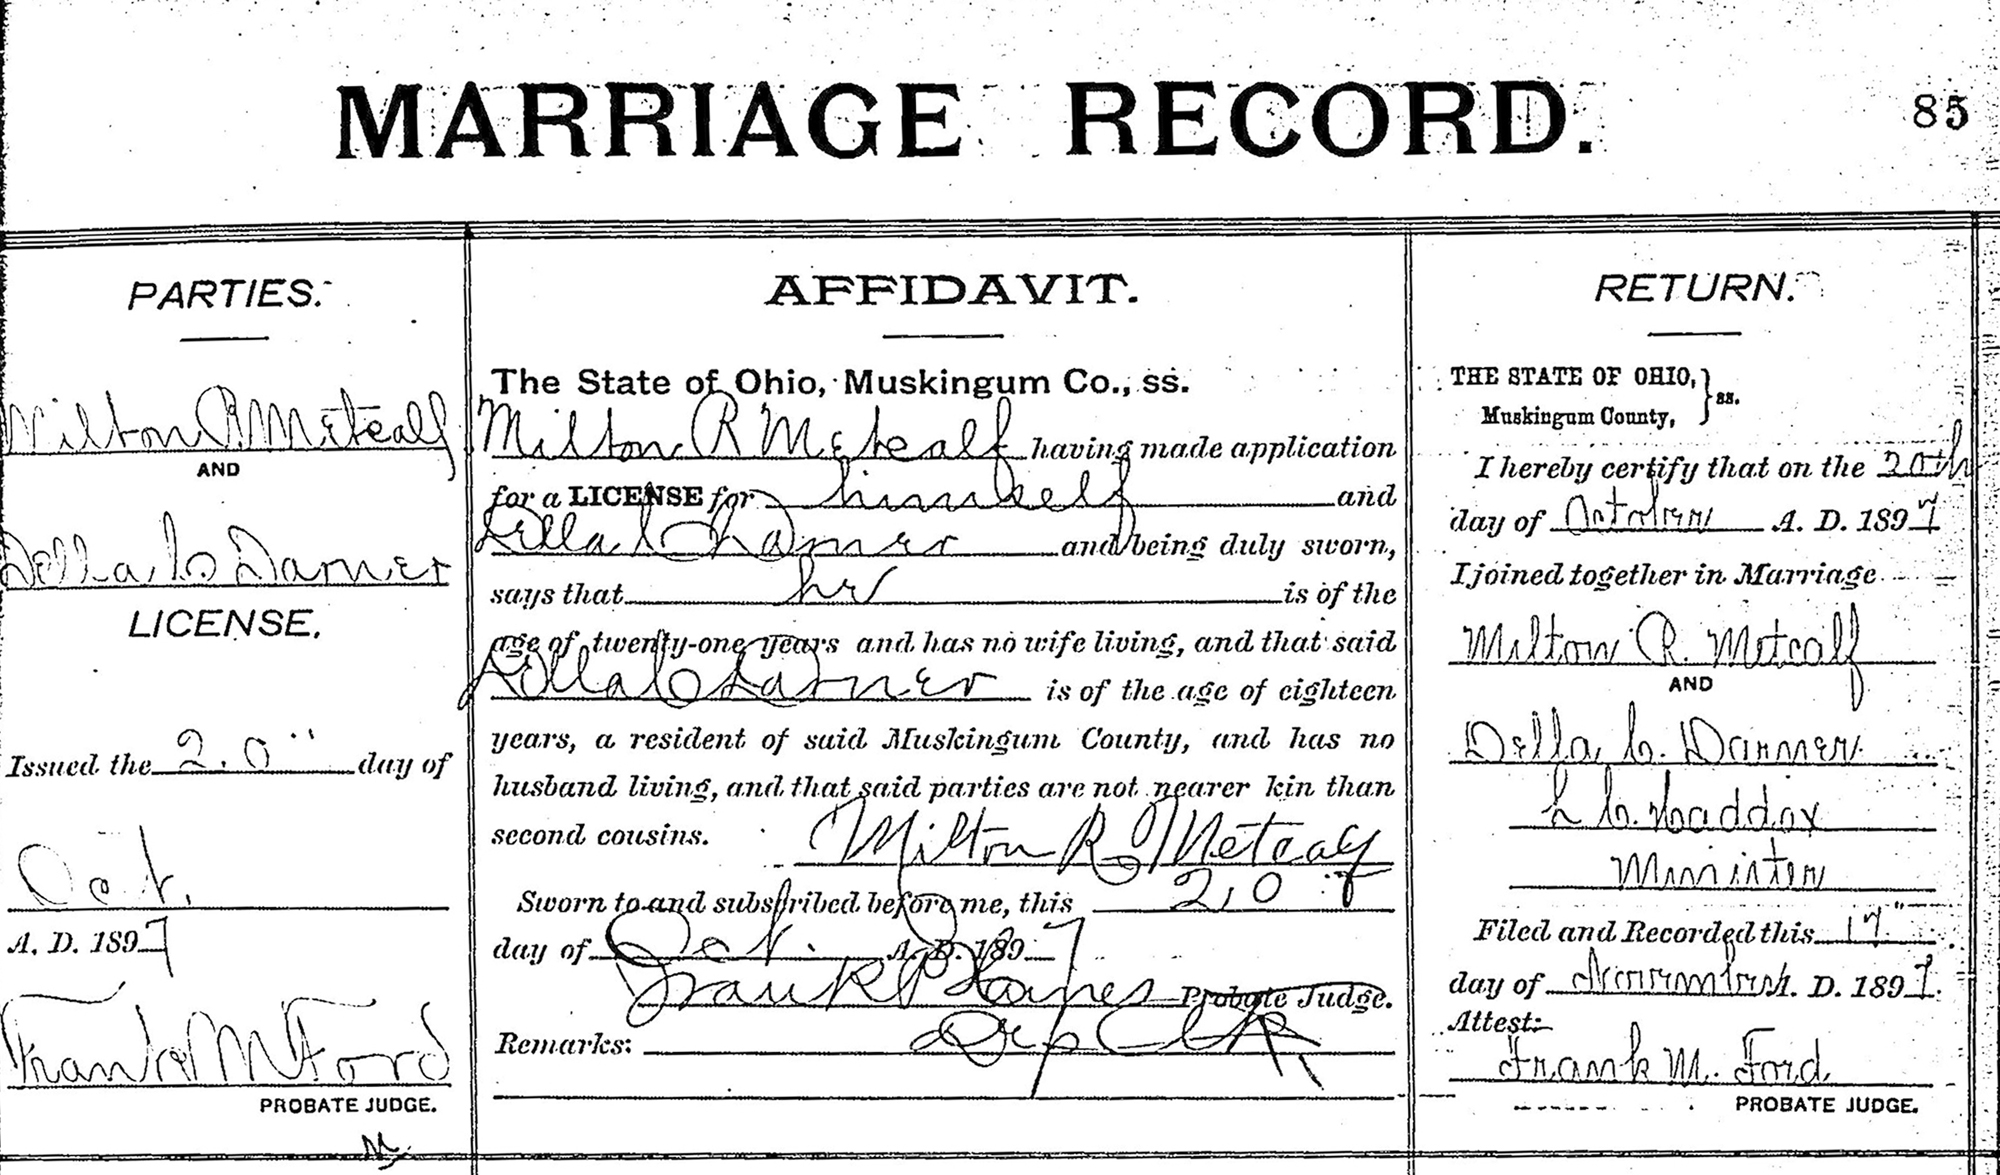 MARRIAGE RECORD.
85
PARTIES.
Milton R Metcalf
AND
Della C Darner
LICENSE.
Issued the 20" day of
Oct.
A. D. 1897
Frank M Ford
PROBATE JUDGE.
AFFIDAVIT.
The State of Ohio, Muskingum Co., ss.
Milton R Metcalf having made application
for a LICENSE for himself and
Della C Darner and being duly sworn,
says that he is of the
age of twenty-one years and has no wife living, and that said
Della C Darner is of the age of eighteen
years, a resident of said Muskingum County, and has no
husband living, and that said parties are not nearer kin than
second cousins.
Milton R Metcalf
Sworn to and subscribed before me, this 20
day of Oct. A. D. 1897
Frank P Haines Probate Judge.
Dep Clk
Remarks:
RETURN.
THE STATE OF OHIO,
Muskingum County, } ss.
I hereby certify that on the 20th
day of October A. D. 1897
I joined together in Marriage
Milton R. Metcalf
AND
Della C. Darner
L C. Haddox
Minister
Filed and Recorded this 17"
day of November A. D. 1897.
Attest:
Frank M. Ford
PROBATE JUDGE.